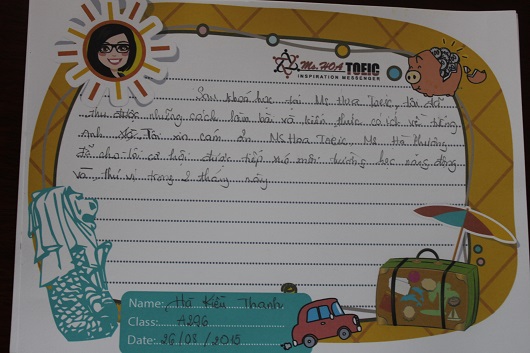 Ms. HOA TOEIC
INSPIRATION MESSENGER
Sau khoá học tại Ms Hoa Toeic, tôn đã
thu được những cách làm bài và kiến thức có ích về tiếng
Anh. Tôi xin cảm ơn Ms Hoa Toeic Ms Hà Phương
để cho tôi cơ hội được tiếp xúc môi trường học năng động
và thú vị trong 2 tháng này
Name: Hà Kiều Thanh
Class: A296
Date: 26/03/2015